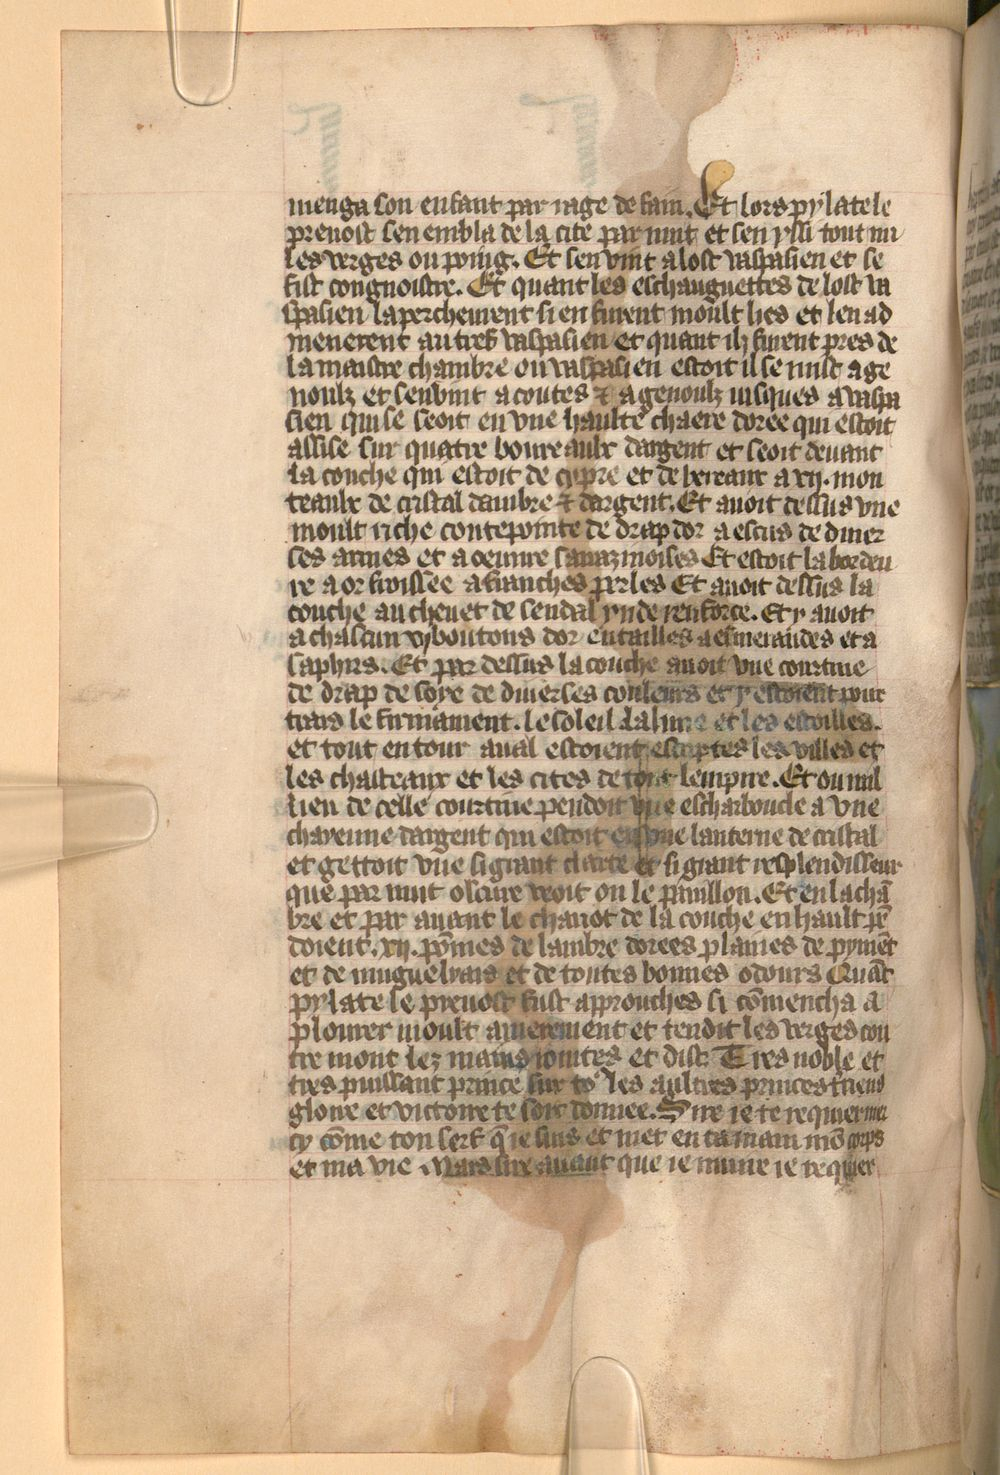 menga son enfant par rage de fain. Et lors pylate le
prevost sen embla de la cite par nuit et sen yssi tout nu
les verges ou poing. Et sen vint a lost vaspasien et se
fist congnoistre. Et quant les eschauguettes de lost va
spasien laperchevrent si en furent moult lies et len ad
menerent au tref vaspasien et quant ilz furent pres de
la maistre chambre ou vaspasien estoit il se mist a ge
noulz et sen vint a coutes & a genoulz iusques a vaspa
sien qui se seoit en vne haulte chaere doree qui estoit
assise sur quatre boureaulx dargent et seoit devant
la couche qui estoit de cypre et de bereaux a xij. mon
teaulx de cristal dambre & dargent. Et avoit dessus vne
moult riche contepointe de drap dor a escus de diver
ses armes et a oeuvre sarrazinoises Et estoit la bordeu
re a or froissee a franches perles Et avoit dessus la
couche au chevet de sendal ynde renforce. Et y avoit
a chascun vj boutons dor entailles a esmeraudes et a
saphirs. Et par dessus la couche avoit vne courtine
de drap de soye de diverses couleurs et y estoient pour
trais le firmament. le soleil la lune et les estoilles.
et tout entour aval estoient escriptes les villes et
les chasteaux et les cites de tout lempire. Et ou mil
lieu de celle courtine pendoit vne escharboucle a vne
chayenne dargent qui estoit en vne lanterne de cristal
et gettoit vne si grant clarte et si grant resplendisseur
que par nuit obscure veoit on le pavillon. Et en la chā
bre et par avant le chavot de la couche en hault pē
doient. xij. pōmes de lambre dorees plaines de pymēt
et de muguelyais et de toutes bonnes odours Quāt
pylate le prevost fust approuches si cōmencha a
plourer moult amerement et tendit les verges con
tre mont lez mains iointes et dist Tres noble et
tres puissant prince sur to9 les aultres princes terriens
gloire et victoire te soit donnee. Sire ie te requier mer
cy cōme ton serf q̄ ie suis et met en ta main mō corps
et ma vie Mais sire avant que ie muire ie requier